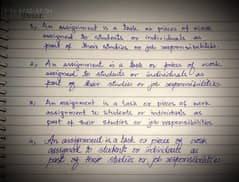 1, An assignment is a task or pieces of work
assigned to students or individuals as
part of their studies or job responsibilities
2, An assignment is a task or pieces of work
assigned to students or individuals as
part of their studies or job responsibilities
3, An assignment is a task or pieces of work
assigned to students or individuals as
part of their studies or job responsibilities
4, An assignment is a task or pieces of work
assigned to students or individuals as
part of their studies or job responsibilities